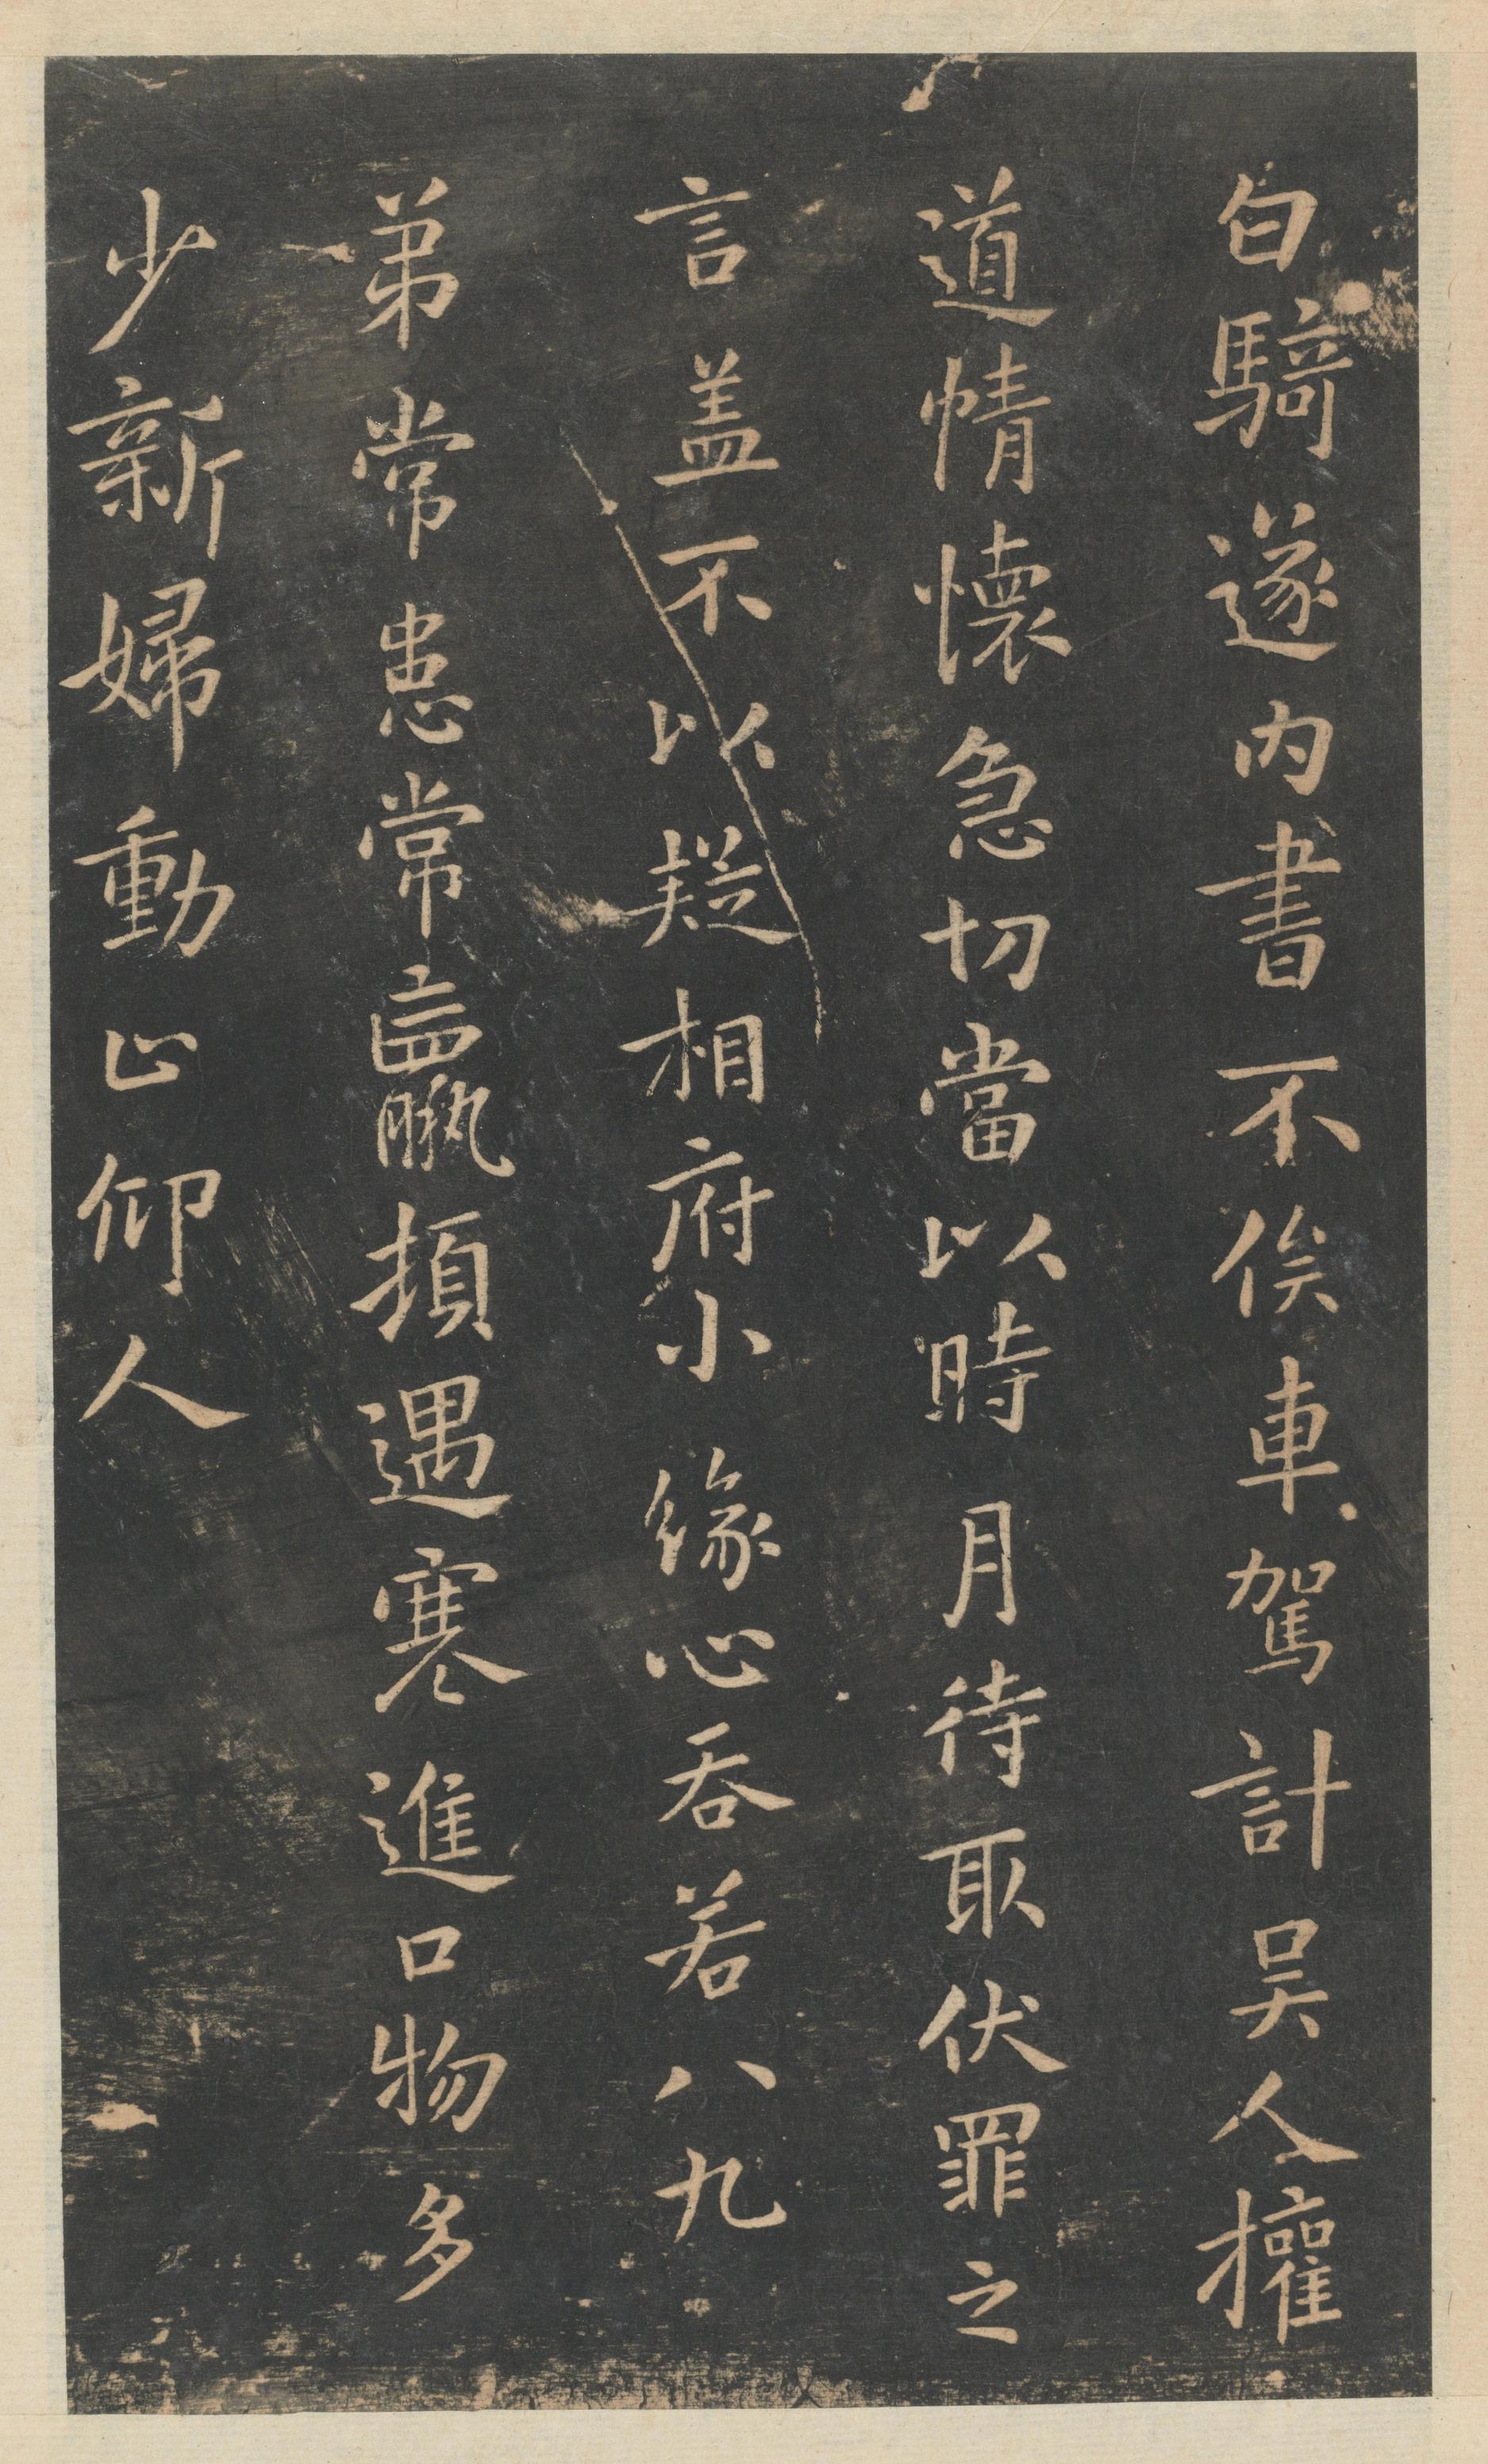 白騎遂內書不俟車駕計吴人權
道情懷急切當以時月待取伏罪之
言盖不以疑相府小緣心吞若八九
弟常患常羸頓遇寒進口物多
少新婦動止仰人